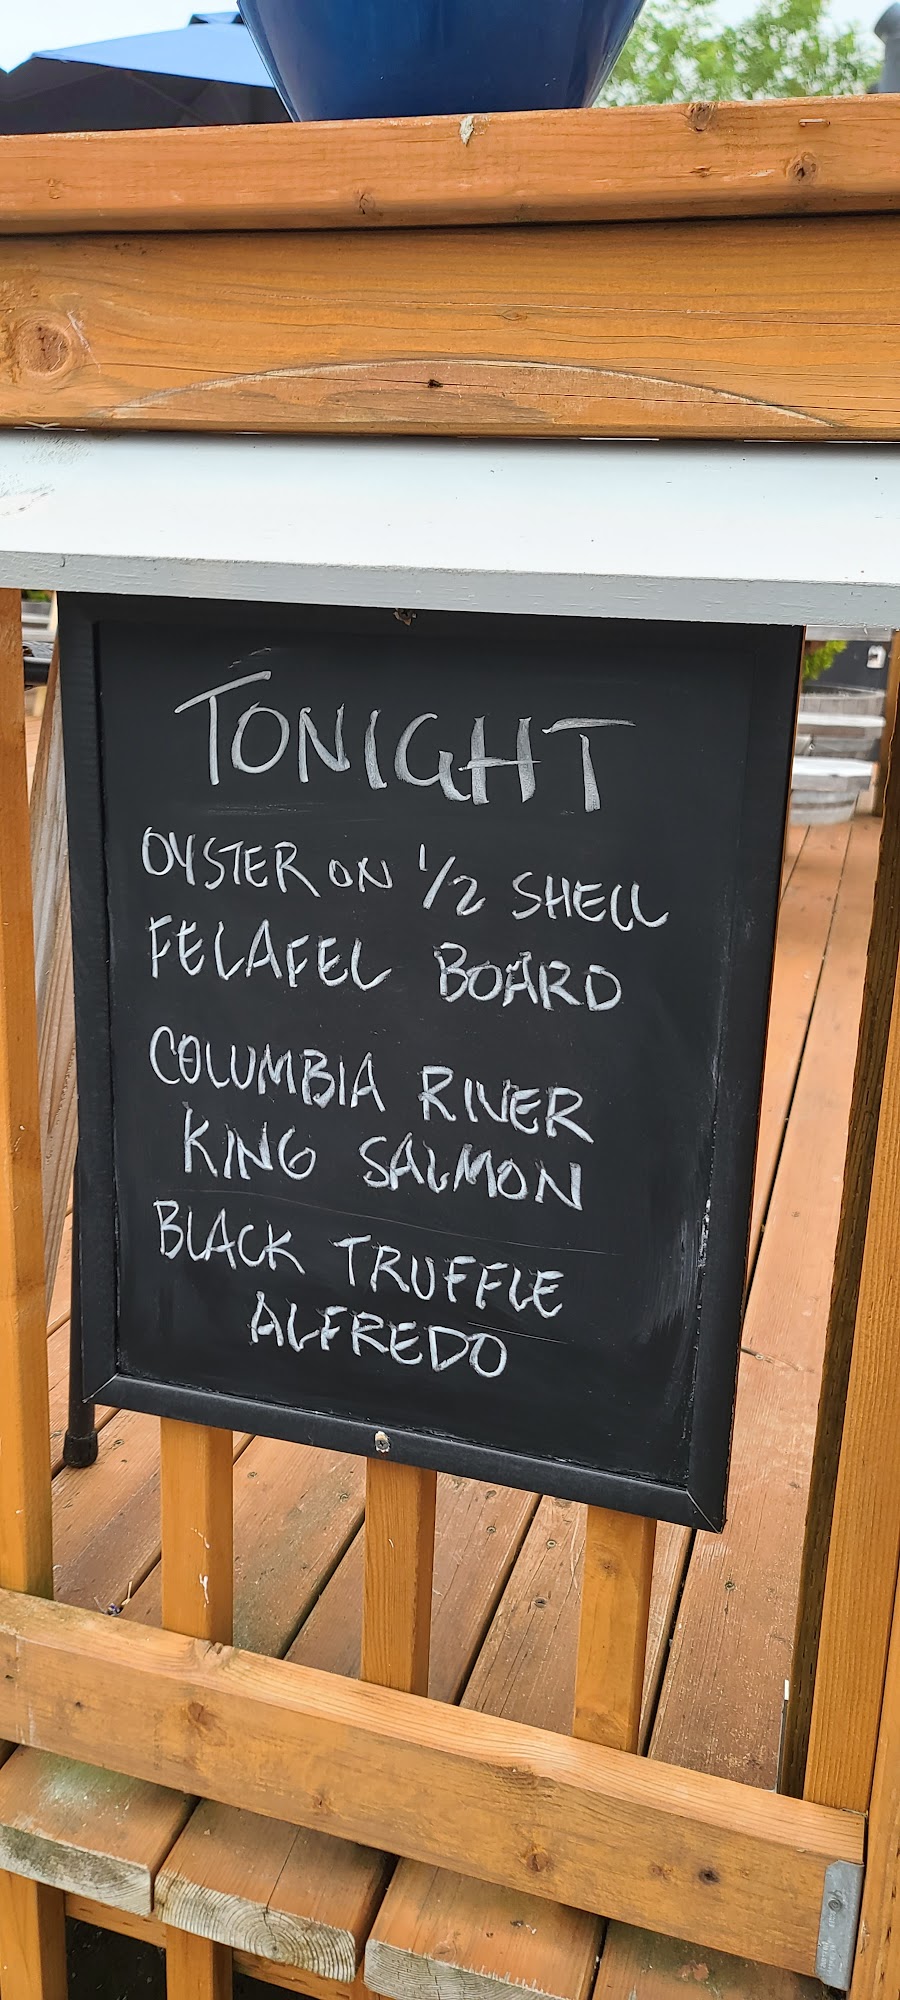 TONIGHT
OYSTER ON 1/2 SHELL
FELAFEL BOARD
COLUMBIA RIVER
KING SALMON
BLACK TRUFFLE
ALFREDO